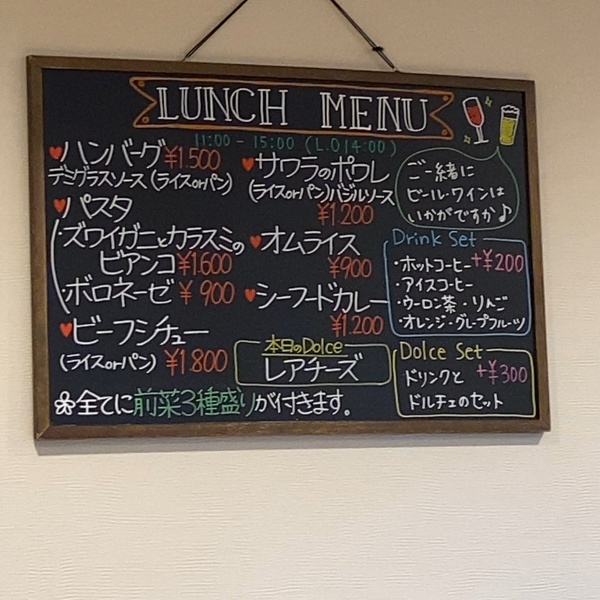 LUNCH MENU
11:00 - 15:00 (L.O14:00)
♥ハンバーグ¥1.500
デミグラスソース(ライスorパン)
♥パスタ
・ズワイガニとカラスミの
ビアンコ¥1.600
・ボロネーゼ¥900
♥ビーフシチュー
(ライスorパン)¥1.800
♥サワラのポワレ
(ライスorパン)バジルソース
¥1.200
♥オムライス
¥900
♥シーフードカレー
¥1.200
本日のDolce
レアチーズ
ご一緒に
ビール・ワインは
いかがですか♪
Drink Set
・ホットコーヒー+¥200
・アイスコーヒー
・ウーロン茶・りんご
・オレンジ・グレープフルーツ
Dolce Set
ドリンクと+¥300
ドルチェのセット
全てに前菜3種盛りが付きます。